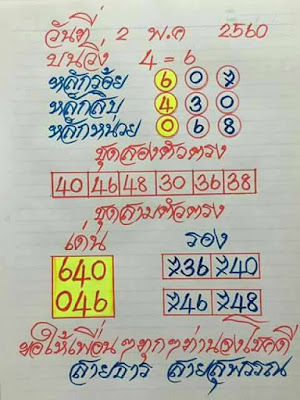 วันที่ 2 พ.ค 2560
บนวิ่ง 4 = 6
หลักร้อย 6 0 7
หลักสิบ 4 3 0
หลักหน่วย 0 6 8
ชุดสองตัวตรง
40 46 48 30 36 38
ชุดสามตัวตรง
เด่น รอง
640 736 740
046 746 748
ขอให้เพื่อนๆทุกๆท่านจงโชคดี
สายธาร สายสุพรรณ